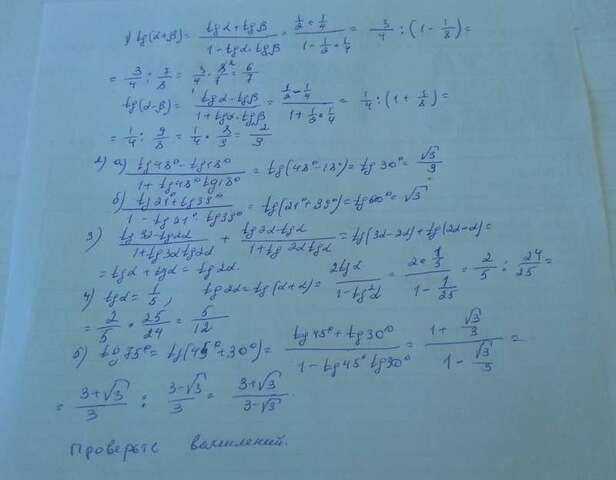 1) tg(α+β) = (tgα + tgβ)/(1 - tgα·tgβ) = (1/2 + 1/4)/(1 - 1/2·1/4) = 3/4 : (1 - 1/8) =
= 3/4 : 7/8 = 3/4 · 8/7 = 6/7
tg(α-β) = (tgα - tgβ)/(1 + tgα·tgβ) = (1/2 - 1/4)/(1 + 1/2·1/4) = 1/4 : (1 + 1/8) =
= 1/4 : 9/8 = 1/4 · 8/9 = 2/9
2) а) (tg48° - tg18°)/(1 + tg48° tg18°) = tg(48° - 18°) = tg30° = √3/3
б) (tg21° + tg39°)/(1 - tg21° · tg39°) = tg(21° + 39°) = tg60° = √3
3) (tg3α - tg2α)/(1 + tg3α tg2α) + (tg2α - tgα)/(1 + tg2α tgα) = tg(3α - 2α) + tg(2α - α) =
= tgα + tgα = tg2α.
4) tgα = 1/5, tg2α = tg(α + α) = 2tgα/(1 - tg²α) = (2·1/5)/(1 - 1/25) = 2/5 : 24/25 =
= 2/5 · 25/24 = 5/12
5) tg75° = tg(45° + 30°) = (tg45° + tg30°)/(1 - tg45° tg30°) = (1 + √3/3)/(1 - √3/3) =
= (3+√3)/3 : (3-√3)/3 = (3+√3)/(3-√3).
Проверьте